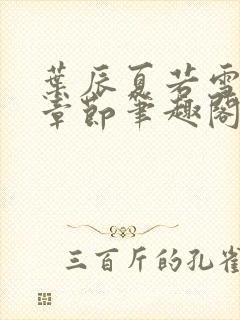 叶辰夏若雪
章节笔趣阁
三百斤的孔雀